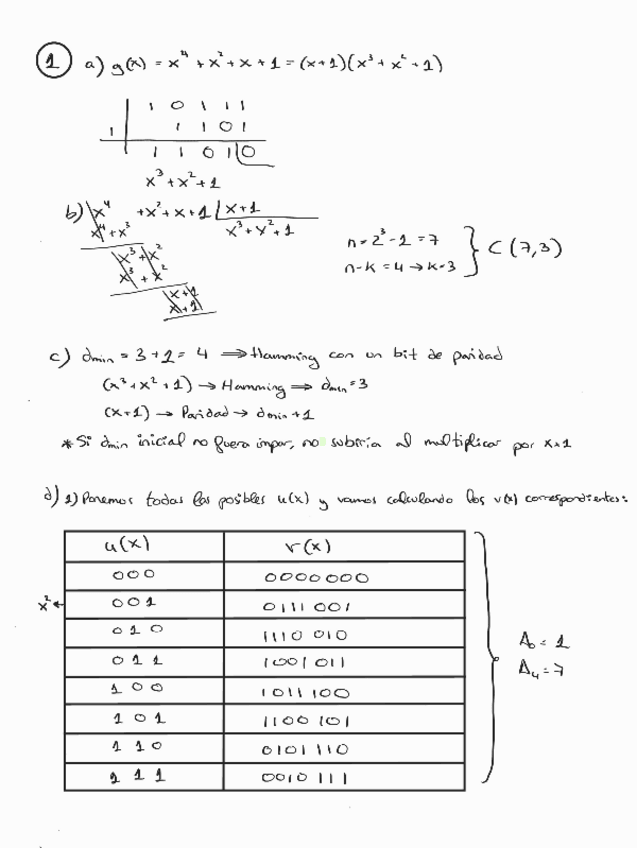 1 a) g(x) = x⁴ + x² + x + 1 = (x+1)(x³ + x² + 1)
1 0 1 1 1
1 1 1 0 1
1 1 0 1 0
x³ + x² + 1
b) x⁴ + x² + x + 1 | x + 1
x⁴ + x³ x³ + x² + 1
x³ + x²
x³ + x²
x+1
x+1
n = 2³ - 1 = 7
n-k = 4 → k = 3
} C (7,3)
c) dmin = 3 + 1 = 4 ⟹ Hamming con un bit de paridad
(x³ + x² + 1) → Hamming ⟹ dmin = 3
(x+1) → Paridad → dmin + 1
* Si dmin inicial no fuera impar, no subiría al multiplicar por x+1
d) 1) Ponemos todas las posibles u(x) y vamos calculando los v(x) correspondientes:
u(x) v(x)
000 0000000
x² ← 001 0111 001
010 1110 010
011 1001 011
100 1011 100
101 1100 101
110 0101 110
111 0010 111
A₀ = 1
A₄ = 7